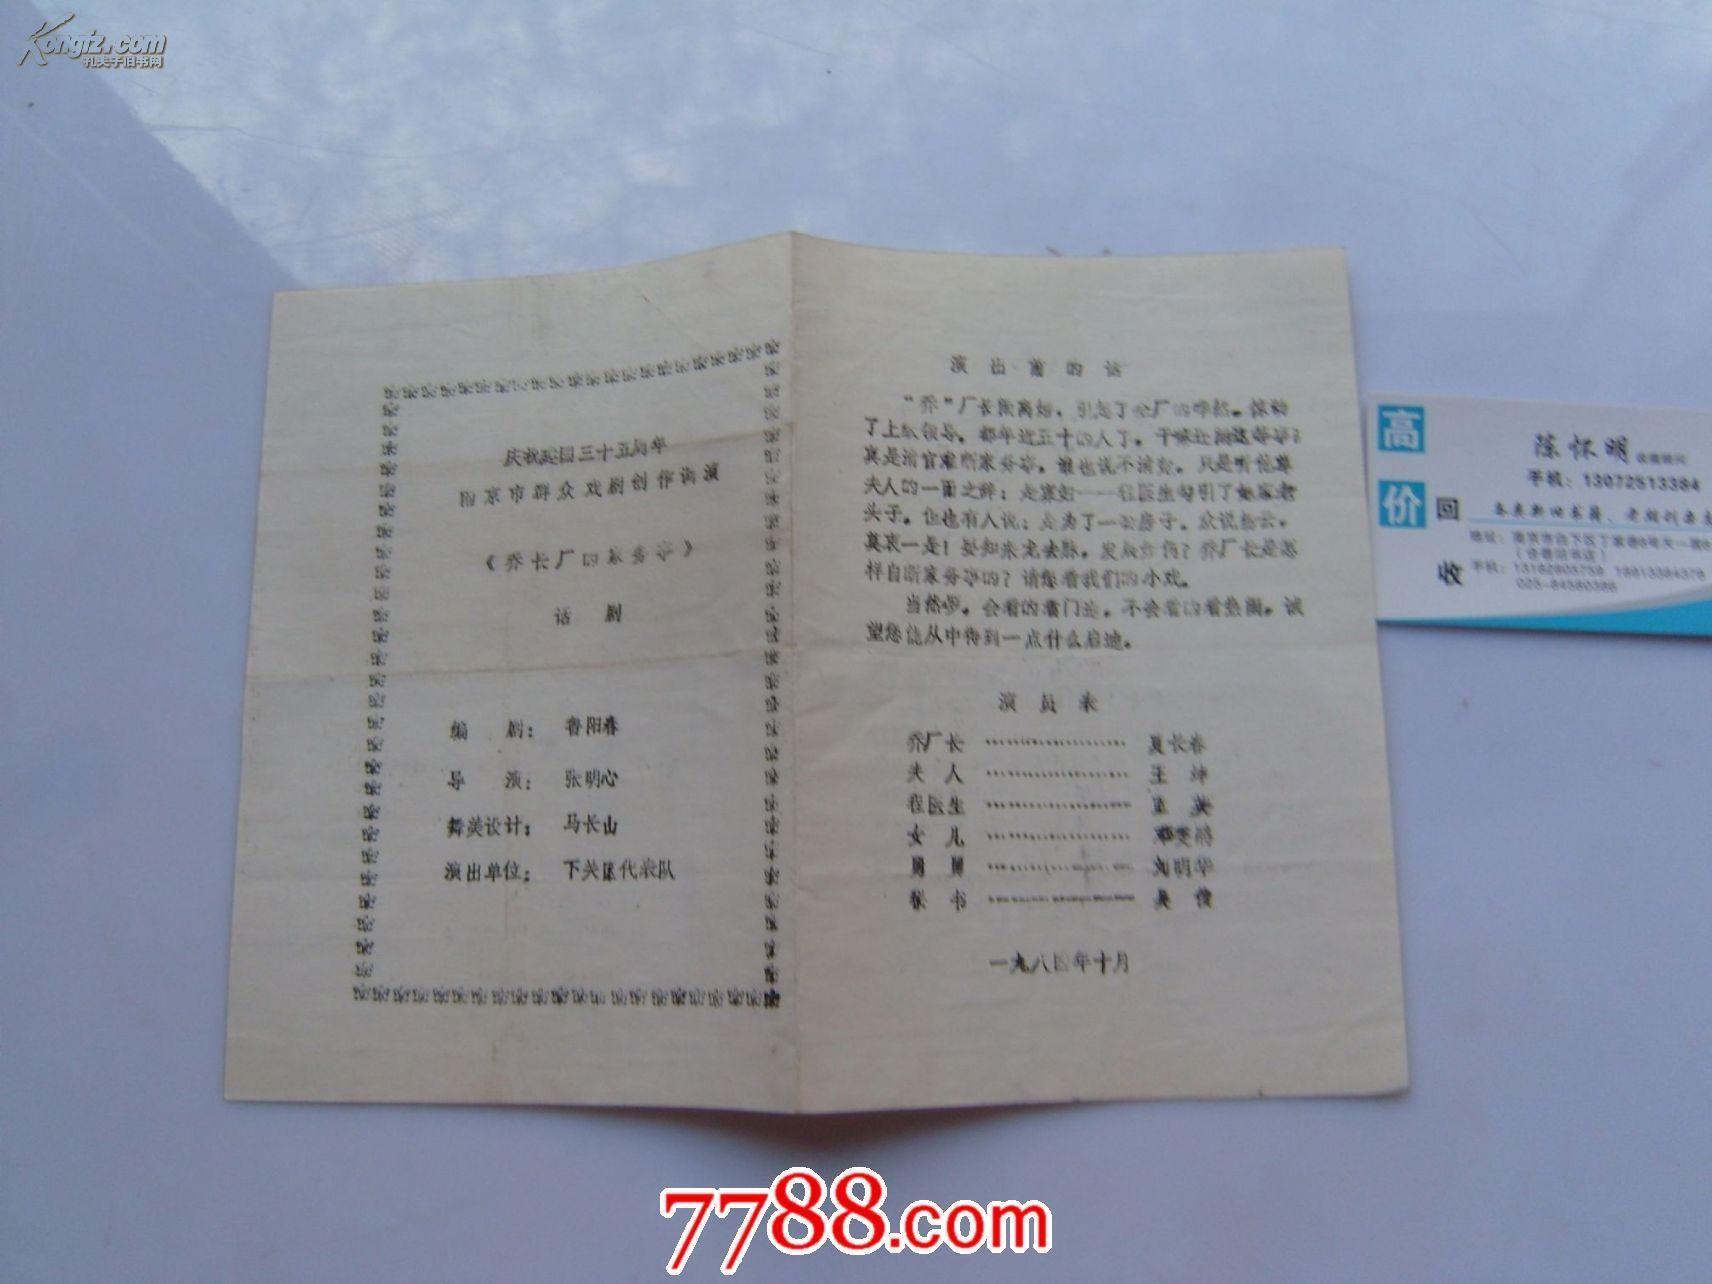 Kongfz.com
孔夫子旧书网
庆祝建国三十五周年
南京市群众戏剧创作调演
《乔长厂的家务事》
话 剧
编 剧: 鲁阳春
导 演: 张明心
舞美设计: 马长山
演出单位: 下关区代表队
演出前的话
"乔"厂长闹离婚,引起了全厂的哗然。惊动
了上级领导。都年近五十的人了。干嘛还闹这等事?
真是清官难断家务事。谁也说不清楚。只是听他
夫人的一面之辞:是寡妇——程医生勾引了她家老
头子。但也有人说:是为了一套房子。众说纷云。
莫衷一是!要知来龙去脉,乔厂长是怎
样自断家务事的?请您看我们的小戏。
当然啰。会看的看门道,不会看的看热闹。诚
望您能从中得到一点什么启迪。
演员表
乔厂长 ………………… 夏长春
夫 人 ………………… 王 坤
程医生 …………………
女 儿 …………………
舅 舅 ………………… 刘明华
秘 书 ………………… 吴 俊
一九八四年十月
高价回收
陈怀明
手机:13072513384
各类新旧书籍、老报刊杂志
地址:南京市白下区丁家巷
手机:13182805759 18913384379
025-84580386
7788.com